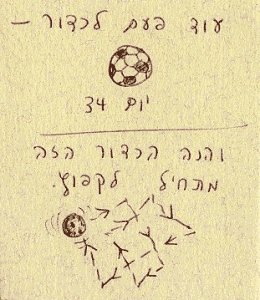 עוד פעם לכדור –
יום 34
והנה הכדור הזה
מתחיל לקפוץ.